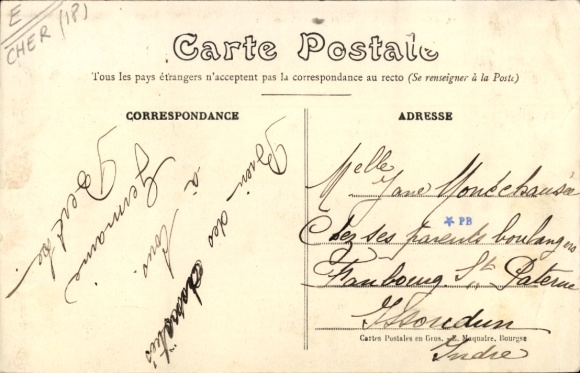 E
CHER (18)
Carte Postale
Tous les pays étrangers n'acceptent pas la correspondance au recto (Se renseigner à la Poste)
CORRESPONDANCE
Bien des
à tous
Germaine
Berthe
ADRESSE
Melle
Jane
PB
Chez ses parents boulangers
Faubourg St Paterne
Issoudun
Cartes Postales en Gros. - E. Maquaire, Bourges
Indre